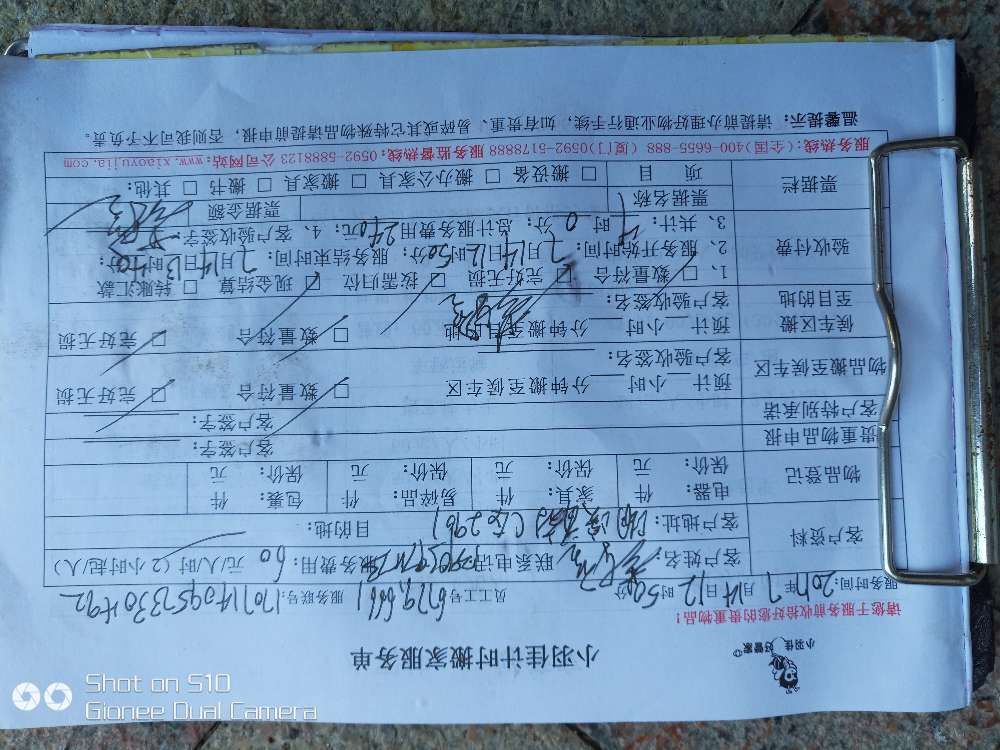 小羽佳 好管家
小羽佳计时搬家服务单
请您于服务前收拾好您的贵重物品!
服务时间: 2017年7月14日12时50分 员工工号: 服务联号: 170714095330492
客户资料 客户姓名: 联系电话: 服务费用: 60 元/人/时(2小时起/人)
客户地址: 目的地:
物品登记 电器: 件 家具: 件 易碎品: 件 包裹: 件
保价: 元 保价: 元 保价: 元 保价: 元
贵重物品申报 客户签字:
客户特别承诺 客户签字:
物品搬至候车区 预计 小时 分钟搬至候车区 □ 数量符合 □ 完好无损
客户验收签名:
候车区搬至目的地 预计 小时 分钟搬至目的地 □ 数量符合 □ 完好无损
客户验收签名:
验收付费 1、□ 数量符合 □ 完好无损 □ 按需归位 □ 现金结算 □ 转账汇款
2、服务开始时间: 7月14日12时50分; 服务结束时间: 7月14日13时40分;
3、共计: 时 0 分; 总计服务费用: 240元; 4、客户验收签字:
票据栏 票据名称 票据金额
项目 □ 搬设备 □ 搬办公家具 □ 搬家具 □ 搬书 □ 其他:
服务热线:(全国)400-6655-888 (厦门)0592-5178888 服务监督热线: 0592-5888123 公司网站: www.xiaoyujia.com
温馨提示: 请提前办理好物业通行手续, 如有贵重、易碎或其它特殊物品请提前申报, 否则我司不予负责。
Shot on S10
Gionee Dual Camera